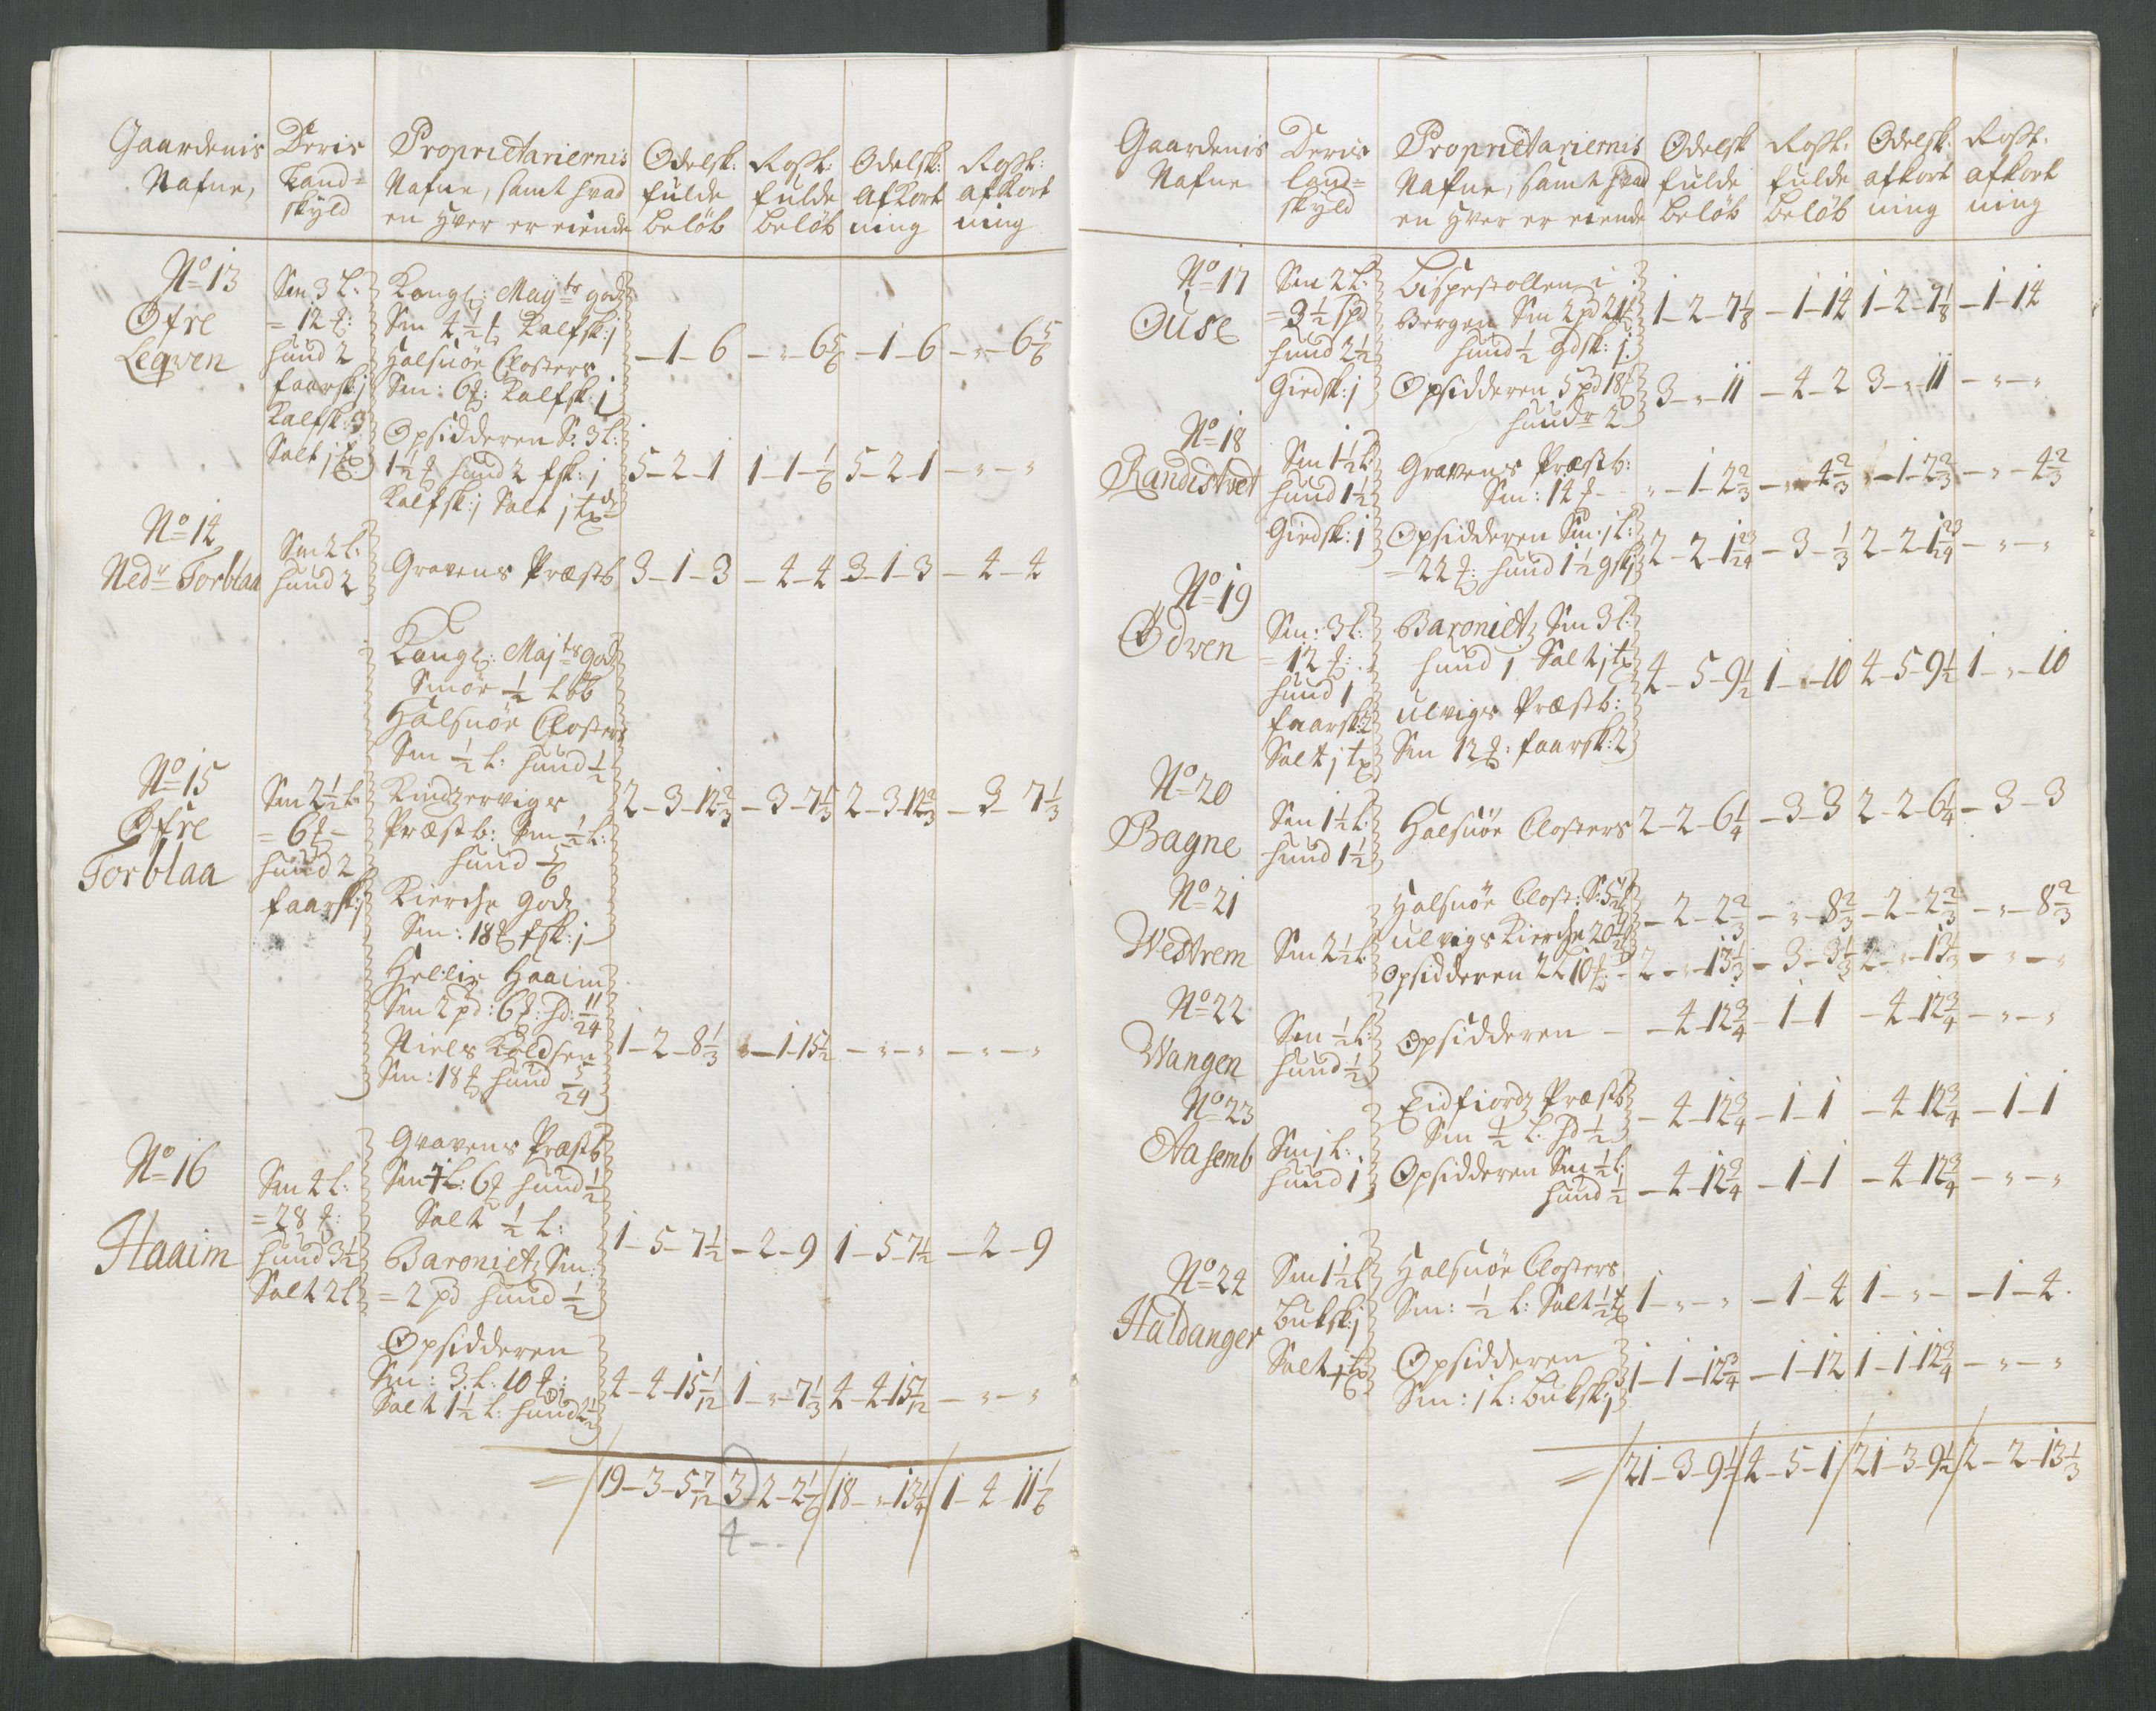 Gaardenis Deris Proprietariernis Odelsk: Rosst: Odelsk: Rosst:
Nafne, Land= Nafne, samt hvad fulde fulde afkort afkort
skyld en hver er eiende beløb beløb ning ning
No 13 Sm 3 l: Kongl: Mayts godz
Øfre = 12 t: Sm 4 1/2 t Kalfsk: j
Leqven hund 2 Halsnöe Closters —1—6 —„—6 5/6 —1—6 —„—6 5/6
faarsk: j Sm: 6 t: Kalfsk: j
Kalfsk: 3 Opsidderen S: 3 l:
Salt j tø 1 1/2 t hund 2 fsk: j 5—2—1 1—1—1/6 5—2—1 —„—„
Kalfsk: j Salt j tøde
No 14
Nedr Torblaa Sm 2 l: hund 2 Gravens Præstb 3—1—3 —4—4 3—1—3 —4—4
Kongl: Majts godz
Smör 1/2 lbb
Halsnöe Closters
Sm 1/2 l: hund 1/2
No 15 Sm 2 1/2 l: Kindzervigs 2—3—12 2/3 —3—7 1/3 2—3—12 2/3 —3—7 1/3
Øfre = 6 t— Præstb: Sm 1/2 l:
Torblaa hund 2 hund 1/6
faarsk: j Kierche godz
Sm: 18 t fsk: j
Hellie Haaim
Sm 2 pd: 6 t: hd: 11/24
Niels Koldsen 1—2—8 1/3 „—1—15 1/2 —„—„ —„—„
Sm: 18 t hund 5/24
Gravens Præstb
No 16 Sm 4 l: Sm 1/4 l: 6 t hund 1/2
= 28 t: Salt 1/2 l:
Haaim hund 3 1/2 Baronietz Sm: 1—5—7 1/2 —2—9 1—5—7 1/2 —2—9
Salt 2 l = 2 pd hund 1/2
Opsidderen
Sm: 3 l: 10 t: 4—4—15 1/12 1—„—7 1/3 4—4—15 1/12 —„—„
Salt 1 1/2 l: hund 2 1/2
= 19—3—5 7/12 3—2—2 1/6 18—„—13 1/4 1—4—11 1/6
4—-
Gaardenis Deris Proprietariernis Odelsk Rosst: Odelsk: Rosst:
Nafne land= Nafne, samt hvad fulde fulde afkort afkort
skyld en hver er eiende beløb beløb ning ning
No 17 Sm 2 l: Bispestollen i
Ouse = 3 1/2 spd Bergen Sm 2 pd 21 t 1—2—7 1/8 —1—14 1—2—7 1/8 —1—14
hund 2 1/2 hund 1/2 gdsk: j
Giedsk: j Opsidderen 5 pd 18 t 3—„—11 —4—2 3—„—11 —„—„
hundr 2
No 18 Sm 1 1/2 l: Gravens Præstb:
Randistvet hund 1 1/2 Sm: 14 t— „—1—2 2/3 —„—4 2/3 —1—2 2/3 —„—4 2/3
Giedsk: j Opsidderen Sm: j l: 2—2—1 23/24 —3—1/3 2—2—1 23/24 —„—„
= 22 t: hund 1 1/2 gsk: j
No 19
Ødven Sm: 3 l: Baronietz Sm 3 l:
= 12 t: hund 1 Salt j tø 4—5—9 1/2 1—„—10 4—5—9 1/2 1—„—10
hund 1 Ulvigs Præstb:
faarsk: 2 Sm 12 t: faarsk: 2
Salt j tø
No 20
Bagne Sm 1 1/2 l: hund 1 1/2 Halsnöe Closters 2—2—6 1/4 —3—3 2—2—6 1/4 —3—3
No 21 Halsnöe Clost: —2—2 2/3 —„—8 2/3 —2—2 2/3 —„—8 2/3
Westrem Sm 2 1/2 l: Ulvigs Kierche 20 t
Opsidderen 10 t: 2—„—13 1/3 —3—3 1/3 2—„—13 1/3 —„—„
No 22
Wangen Sm 1/2 l: hund 1/2 Opsidderen — —4—12 3/4 —1—1 —4—12 3/4 —„—„
No 23 Eidfiordz Præstb —4—12 3/4 —1—1 —4—12 3/4 —1—1
Aasemb Sm j l: Sm 1/2 l. hd 1/2
hund 1 Opsidderen Sm 1/2 l: —4—12 3/4 —1—1 —4—12 3/4 —„—„
hund 1/2
No 24 Sm 1 1/2 l Halsnöe Closters
Haldanger Buksk: j Sm: 1/2 l: Salt 1/2 tø 1—„—„ —1—4 1—„— —1—4
Salt tø Opsidderen 1—1—12 3/4 —1—12 1—1—12 3/4 —„—„
Sm: j l: buksk: j
= 21—3—9 1/2 4—5—1 21—3—9 1/2 2—2—13 1/3